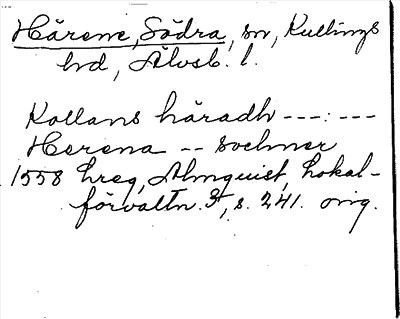 Härene, Södra, sn, Kullings
hd, Älvsb. l.
Kollans häradh ---:---
Herena -- sochner
1558 hreg, Almquist, Lokal-
förvaltn. 3, s. 241. orig.